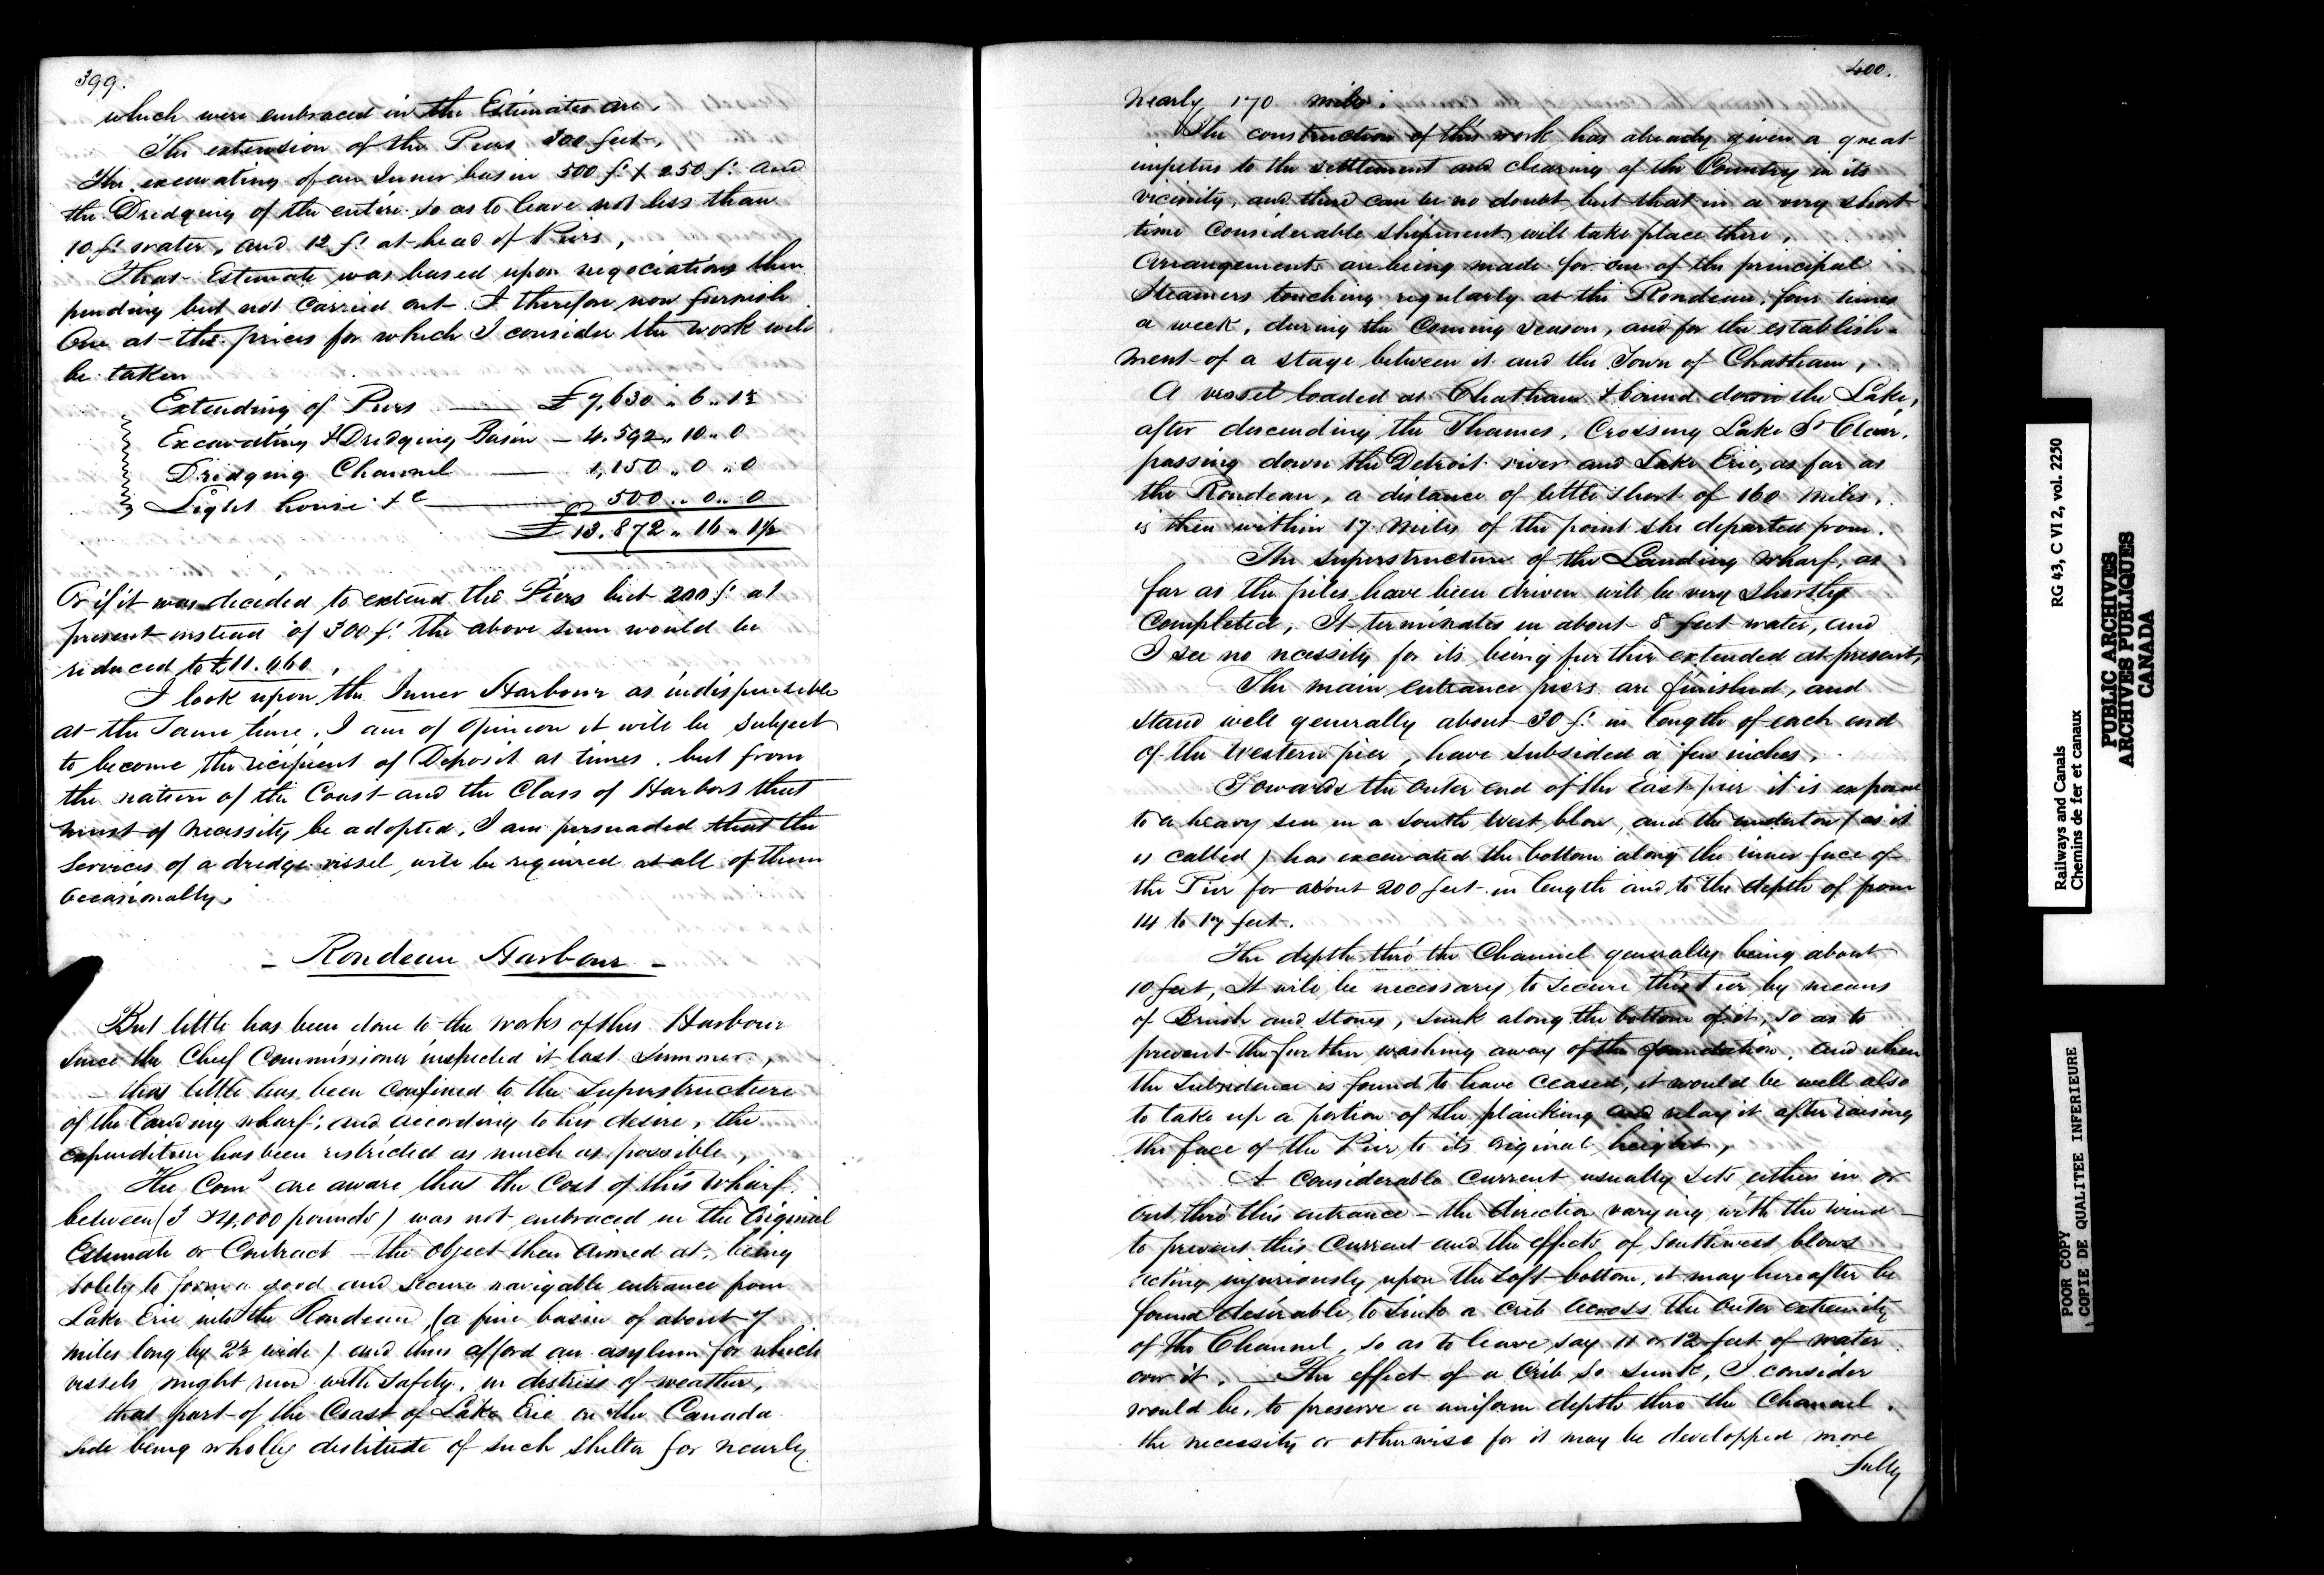 399.
which were embraced in the Estimates are,
The extension of the Piers 300 feet,
The excavating of an Inner basin 500 f! x 250 f! and
the Dredging of the entire so as to leave not less than
10 f! water, and 12 f! at head of Piers,
That Estimate was based upon negociations then
pending but not carried out I therefore now furnish
One at the prices for which I consider the work will
be taken
Extending of Piers — £7,630 " 6 " 1½
Excavating & Dredging Basin — 4.592 " 10 " 0
Dredging Channel — 1,150 " 0 " 0
Light house &c — 500 " 0 " 0
£13.872 " 16 " 1½
Or if it was decided to extend the Piers but 200 f! at
present instead of 300 f! the above sum would be
reduced to £11.460,
I look upon the Inner Harbour as indispensable
at the same time, I am of opinion it will be subject
to become the recipient of Deposit at times. but from
the nature of the Coast and the Class of Harbors that
must of necessity be adopted, I am persuaded that the
Services of a dredge vessel will be required at all of them
occasionally.
- Rondeau Harbour -
But little has been done to the works of this Harbour
since the Chief Commissioner inspected it last Summer,
- that little has been confined to the Superstructure
of the Landing wharf; and according to his desire, the
expenditure has been restricted as much as possible,
The Comrs are aware that the Cost of this wharf
between (3 & 4,000 pounds) was not embraced in the Original
Estimate or Contract - the object then aimed at, being
solely to form a good and secure navigable entrance from
Lake Erie into the Rondeau, (a fine basin of about 7
miles long by 2½ wide) and thus afford an asylum for which
vessels might run with safety, in distress of weather,
that part of the Coast of Lake Erie on the Canada
side being wholly destitute of such shelter for nearly
400.
nearly 170 miles.
The construction of this work has already given a great
impetus to the settlement and clearing of the Country in its
vicinity, and there can be no doubt, but that in a very short
time Considerable shipments will take place there,
Arrangements are being made for one of the principal
Steamers touching regularly at the Rondeau, four times
a week, during the Coming season, and for the establish-
ment of a stage between it and the Town of Chatham,
A vessel loaded at Chatham & bound down the Lake,
after descending the Thames, Crossing Lake St Clair,
passing down the Detroit river and Lake Erie, as far as
the Rondeau, a distance of little short of 160 miles,
is then within 17 Miles of the point she departed from.
The superstructure of the Landing wharf, as
far as the piles have been driven will be very shortly
Completed, It terminates in about 8 feet water, and
I see no necssity for its being further extended at present,
The main entrance piers are finished, and
stand well generally about 30 f! in length of each end
of the Western pier, have subsided a few inches,
Towards the outer end of the East pier it is exposed
to a heavy sea in a South West blow, and the undertow (as it
is called) has excavated the bottom along the inner face of
the Pier for about 200 feet in length and to the depth of from
14 to 17 feet.
The depth thro' the Channel generally being about
10 feet, It will be necessary to secure this Pier by means
of Brush and Stones, sunk along the bottom of it, so as to
prevent the further washing away of the foundation, and when
the Subsidence is found to have ceased, it would be well also
to take up a portion of the planking and relay it after raising
the face of the Pier to its original height,
A considerable current usually sets either in or
out, thro' this entrance - the direction varying with the wind -
to prevent this Current and the effects of Southwest blows
acting injuriously upon the soft bottom, it may hereafter be
found desirable, to sink a crib across the outer extremity
of the Channel, so as to leave say 11 or 12 feet of water
over it. - The effect of a Crib so sunk, I consider
would be, to preserve a uniform depth thro the Channel.
the necessity or otherwise for it may be developped more
fully
RG 43, C VI 2, vol. 2250
Railways and Canals
Chemins de fer et canaux
PUBLIC ARCHIVES
ARCHIVES PUBLIQUES
CANADA
POOR COPY
COPIE DE QUALITEE INFERIEURE